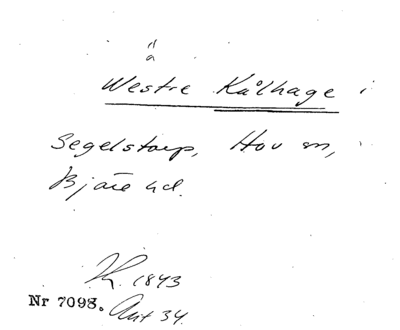 å
Westre Kålhage i
Segelstorp, Hov sn,
Bjäre hd.
1843
Nr 7098. Akt 34.